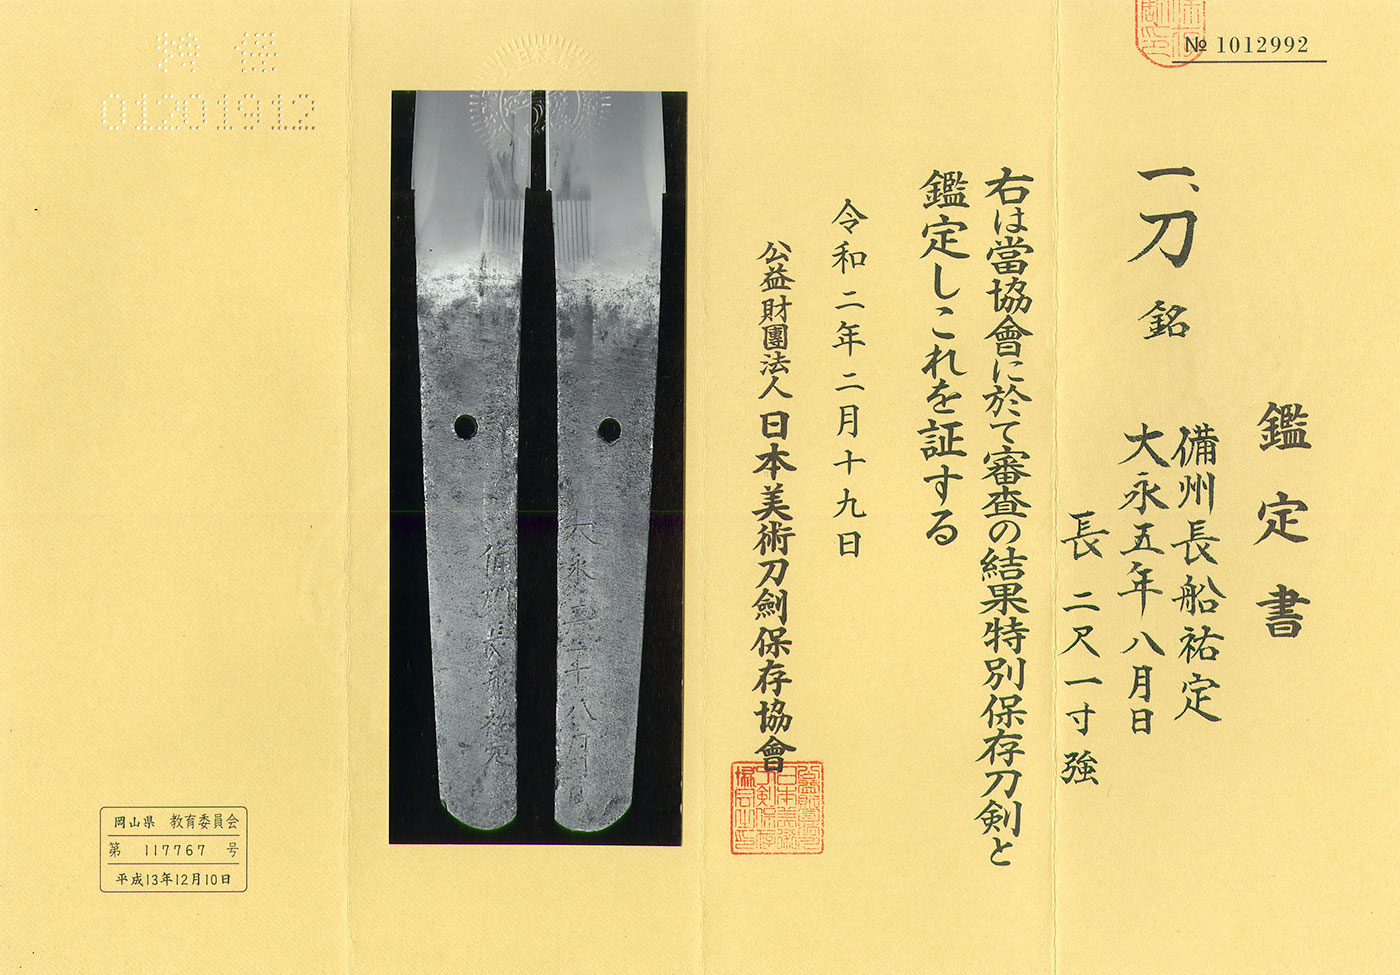 № 1012992
鑑定書
一、刀 銘
備州長船祐定
大永五年八月日
長 二尺一寸強
右は當協會に於て審査の結果特別保存刀剣と
鑑定しこれを証する
令和二年二月十九日
公益財團法人 日本美術刀劍保存協會
大永五年八月日
備州長船祐定
特保
01201912
岡山県 教育委員会
第 117767 号
平成13年12月10日